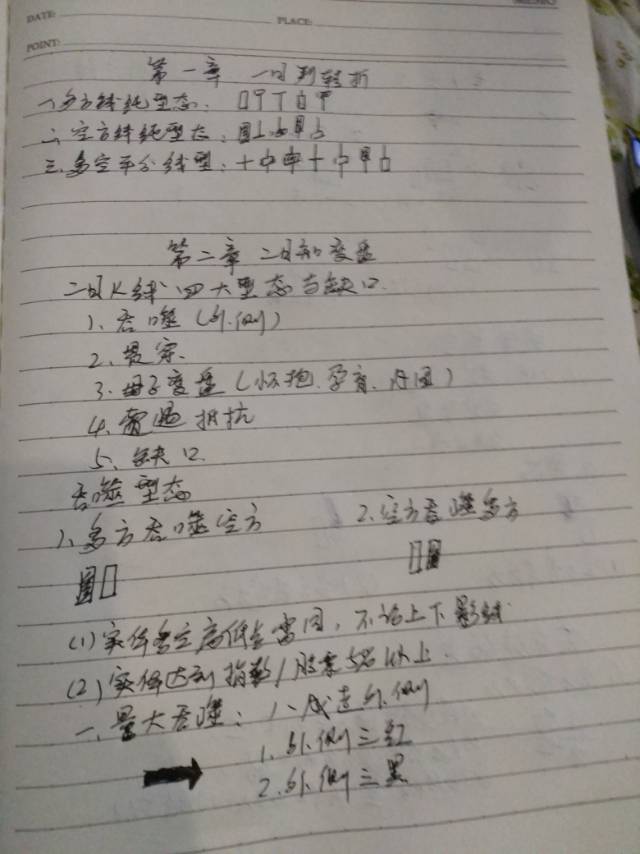 MEMO
DATE: PLACE:
POINT:
第一章 一日到转折
一、多方线纯型态:
二、空方线纯型态:
三、多空平分线型:
第二章 二日和变盘
二日K线四大型态与缺口
1、吞噬(外侧)
2、贯穿
3、母子变盘(怀抱、孕育、内困)
4、遭遇抵抗
5、缺口
吞噬型态
1、多方吞噬空方 2、空方吞噬多方
(1)实体多空高低点雷同,不论上下影线
(2)实体达到指数/股票5%以上
一、量大吞噬:
1.外侧三红
2.外侧三黑